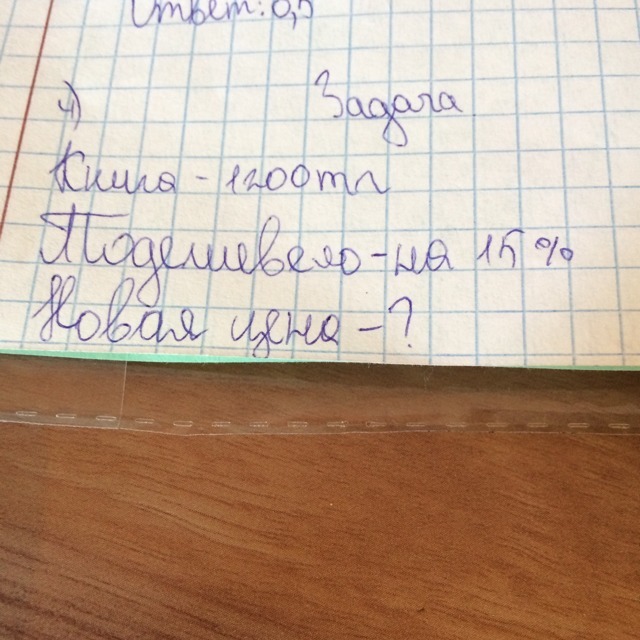 Ответ: 0,5
4)
Задача
Книга - 1200тг
Подешевело - на 15%
Новая цена - ?